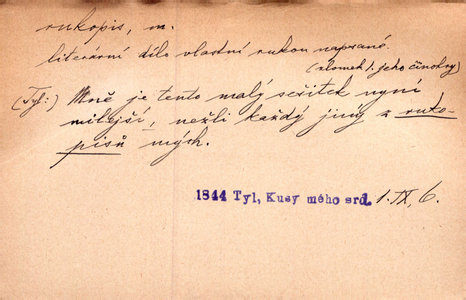 rukopis, m.
literární dílo vlastní rukou napsané.
(zlomek 1. jeho činohry)
(Tyl:) Mně je tento malý sešitek nyní
milejší, nežli každý jiný z ruko-
pisů mých.
1844 Tyl, Kusy mého srd. 1. IX, 6.